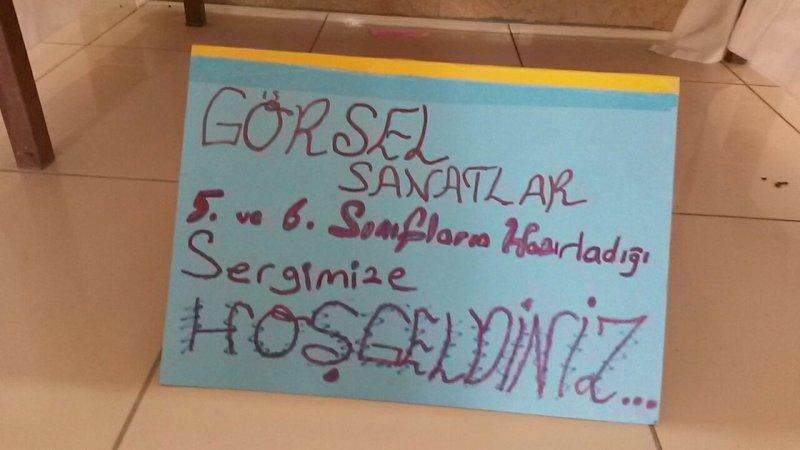 GÖRSEL
SANATLAR
5. ve 6. Sınıfların Hazırladığı
Sergimize
HOŞGELDİNİZ...